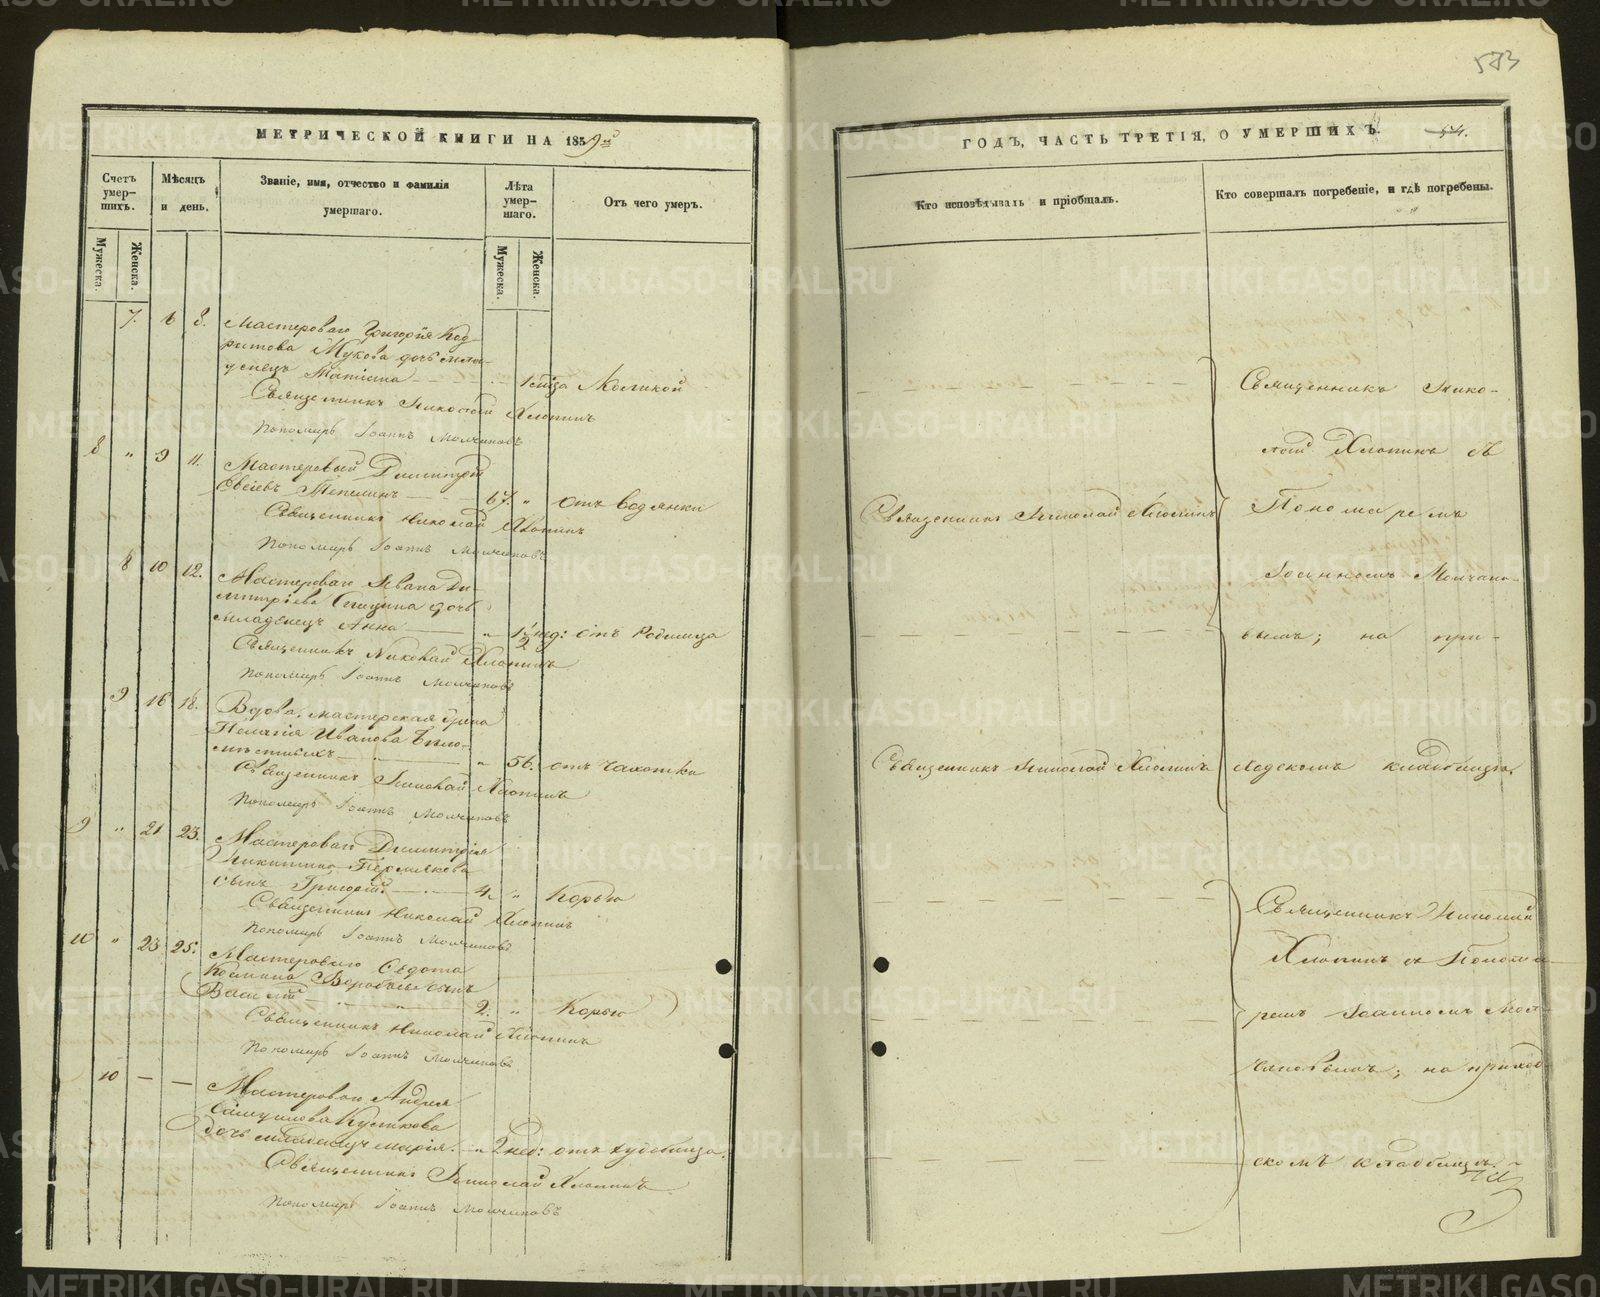 583
МЕТРИЧЕСКОЙ КНИГИ НА 1859й
Счетъ умер-шихъ.
Мужеска.
Женска.
Мѣсяцъ и день.
Званіе, имя, отчество и фамилія умершаго.
Лѣта умер-шаго.
Мужеска.
Женска.
Отъ чего умеръ.
7. 6 8. Мастероваго Григорія
Жукова дочь мла-
1
Священникъ Николай Хлопинъ
Пономарь Іоаннъ Молчановъ
8 " 9 11. Мастеровый Димитрій
67. " отъ водянки
Священникъ Николай Хлопинъ
Пономарь Іоаннъ Молчановъ
8 10 12. Мастероваго Ивана Ди-
митріева Спицина дочь
младенецъ Анна " 1½ нед: отъ Родимца
Священникъ Николай Хлопинъ
Пономарь Іоаннъ Молчановъ
9 16 18. Вдова, мастерская жена
Пелагія Иванова Бѣло-
" 56. отъ Чахотки
Священникъ Николай Хлопинъ
Пономарь Іоаннъ Молчановъ
9 " 21 23. Мастероваго Димитрія
Никитина Пермякова
сынъ Григорій 4. " Корью
Священникъ Николай Хлопинъ
Пономарь Іоаннъ Молчановъ
10 " 23 25. Мастероваго Ѳедота
Козмина Воробьева сынъ
Василій 2. " Корью
Священникъ Николай Хлопинъ
Пономарь Іоаннъ Молчановъ
10 — — Мастероваго Андрея
Самуилова
дочь младенецъ Марія. " 2 нед: отъ худобища.
Священникъ Николай Хлопинъ
Пономарь Іоаннъ Молчановъ
ГОДЪ, ЧАСТЬ ТРЕТІЯ, О УМЕРШИХЪ.
54.
Кто исповѣдывалъ и пріобщалъ.
Кто совершалъ погребеніе, и гдѣ погребены.
Священникъ Нико-
лай Хлопинъ съ
Священникъ Николай Хлопинъ
Пономаремъ
Іоанномъ Молчано-
вымъ; на при-
Священникъ Николай Хлопинъ
ходскомъ кладбищѣ.
Священникъ Николай
Хлопинъ съ Понома-
ремъ Іоанномъ Мол-
чановымъ; на приход-
скомъ кладбищѣ.
METRIKI.GASO-URAL.RU